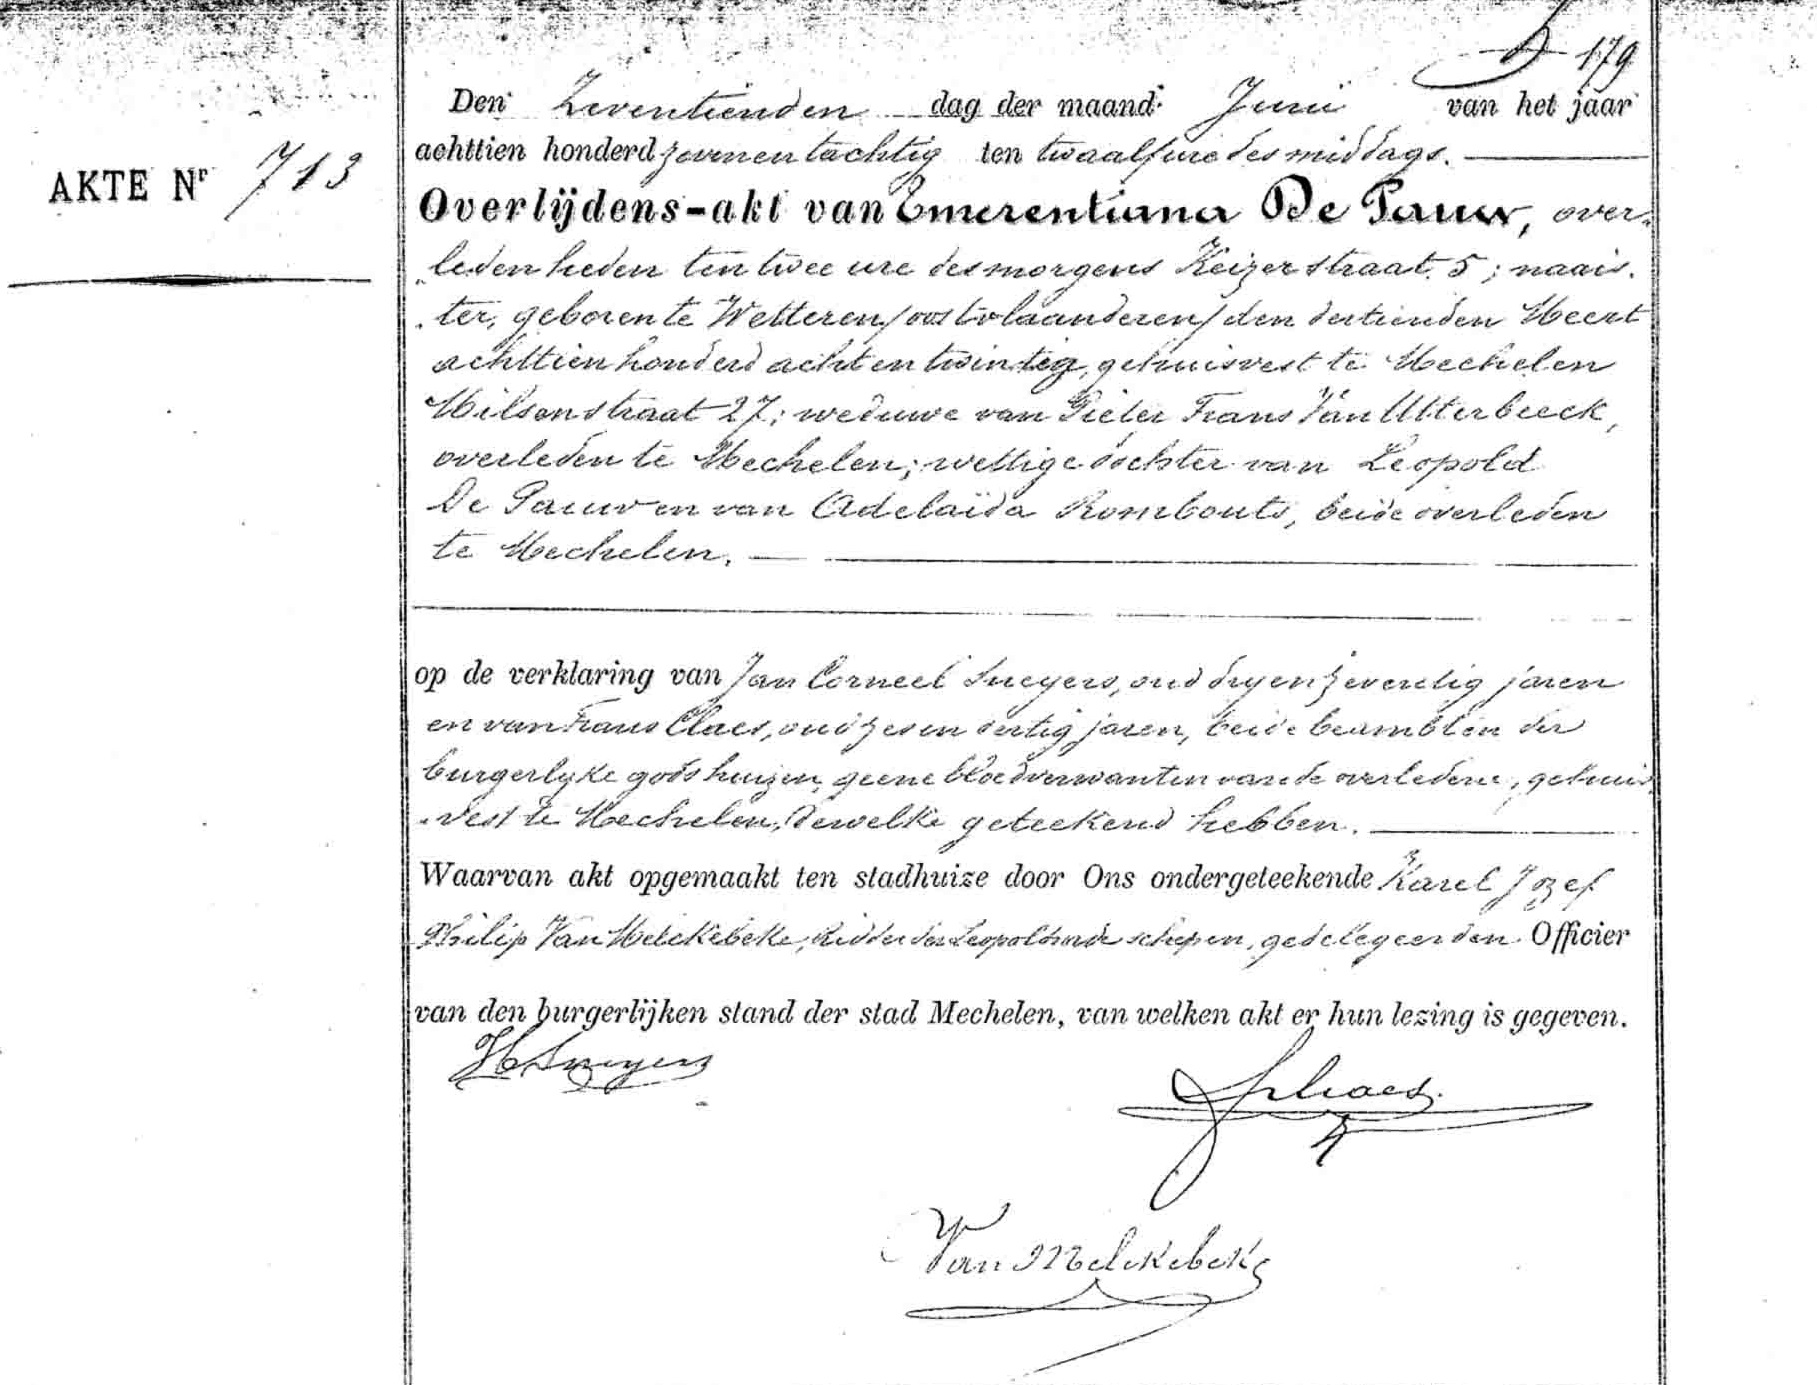 179
Den Zeventienden dag der maand Junii van het jaar
AKTE Nr 713
achttien honderd zevenen tachtig ten twaalf ure des middags.
Overlijdens-akt van Emerentiana De Pauw, over-
leden heden ten twee ure des morgens Keizerstraat 5; naais-
ter, geboren te Wetteren /oostvlaanderen/ den dertienden Meert
achttien honderd acht en twintig, gehuisvest te Mechelen
Milsenstraat 27; weduwe van Pieter Frans Van Utterbeeck,
overleden te Mechelen; wettige dochter van Leopold
De Pauw en van Adelaïda Rombouts, beide overleden
te Mechelen.
op de verklaring van Jan Corneel Sneyers, oud dry en zeventig jaren
en van Frans Claes, oud zes en dertig jaren, beide beambten der
burgerlyke godshuizen, geene bloedverwanten van de overledene, gehuis-
vest te Mechelen, dewelke geteekend hebben.
Waarvan akt opgemaakt ten stadhuize door Ons ondergeteekende Karel Jozef
Philip Van Melckebeke, Ridder der Leopoldsorde schepen, gedelegeerden Officier
van den burgerlijken stand der stad Mechelen, van welken akt er hun lezing is gegeven.
Sneyers
Claes.
Van Melckebeke